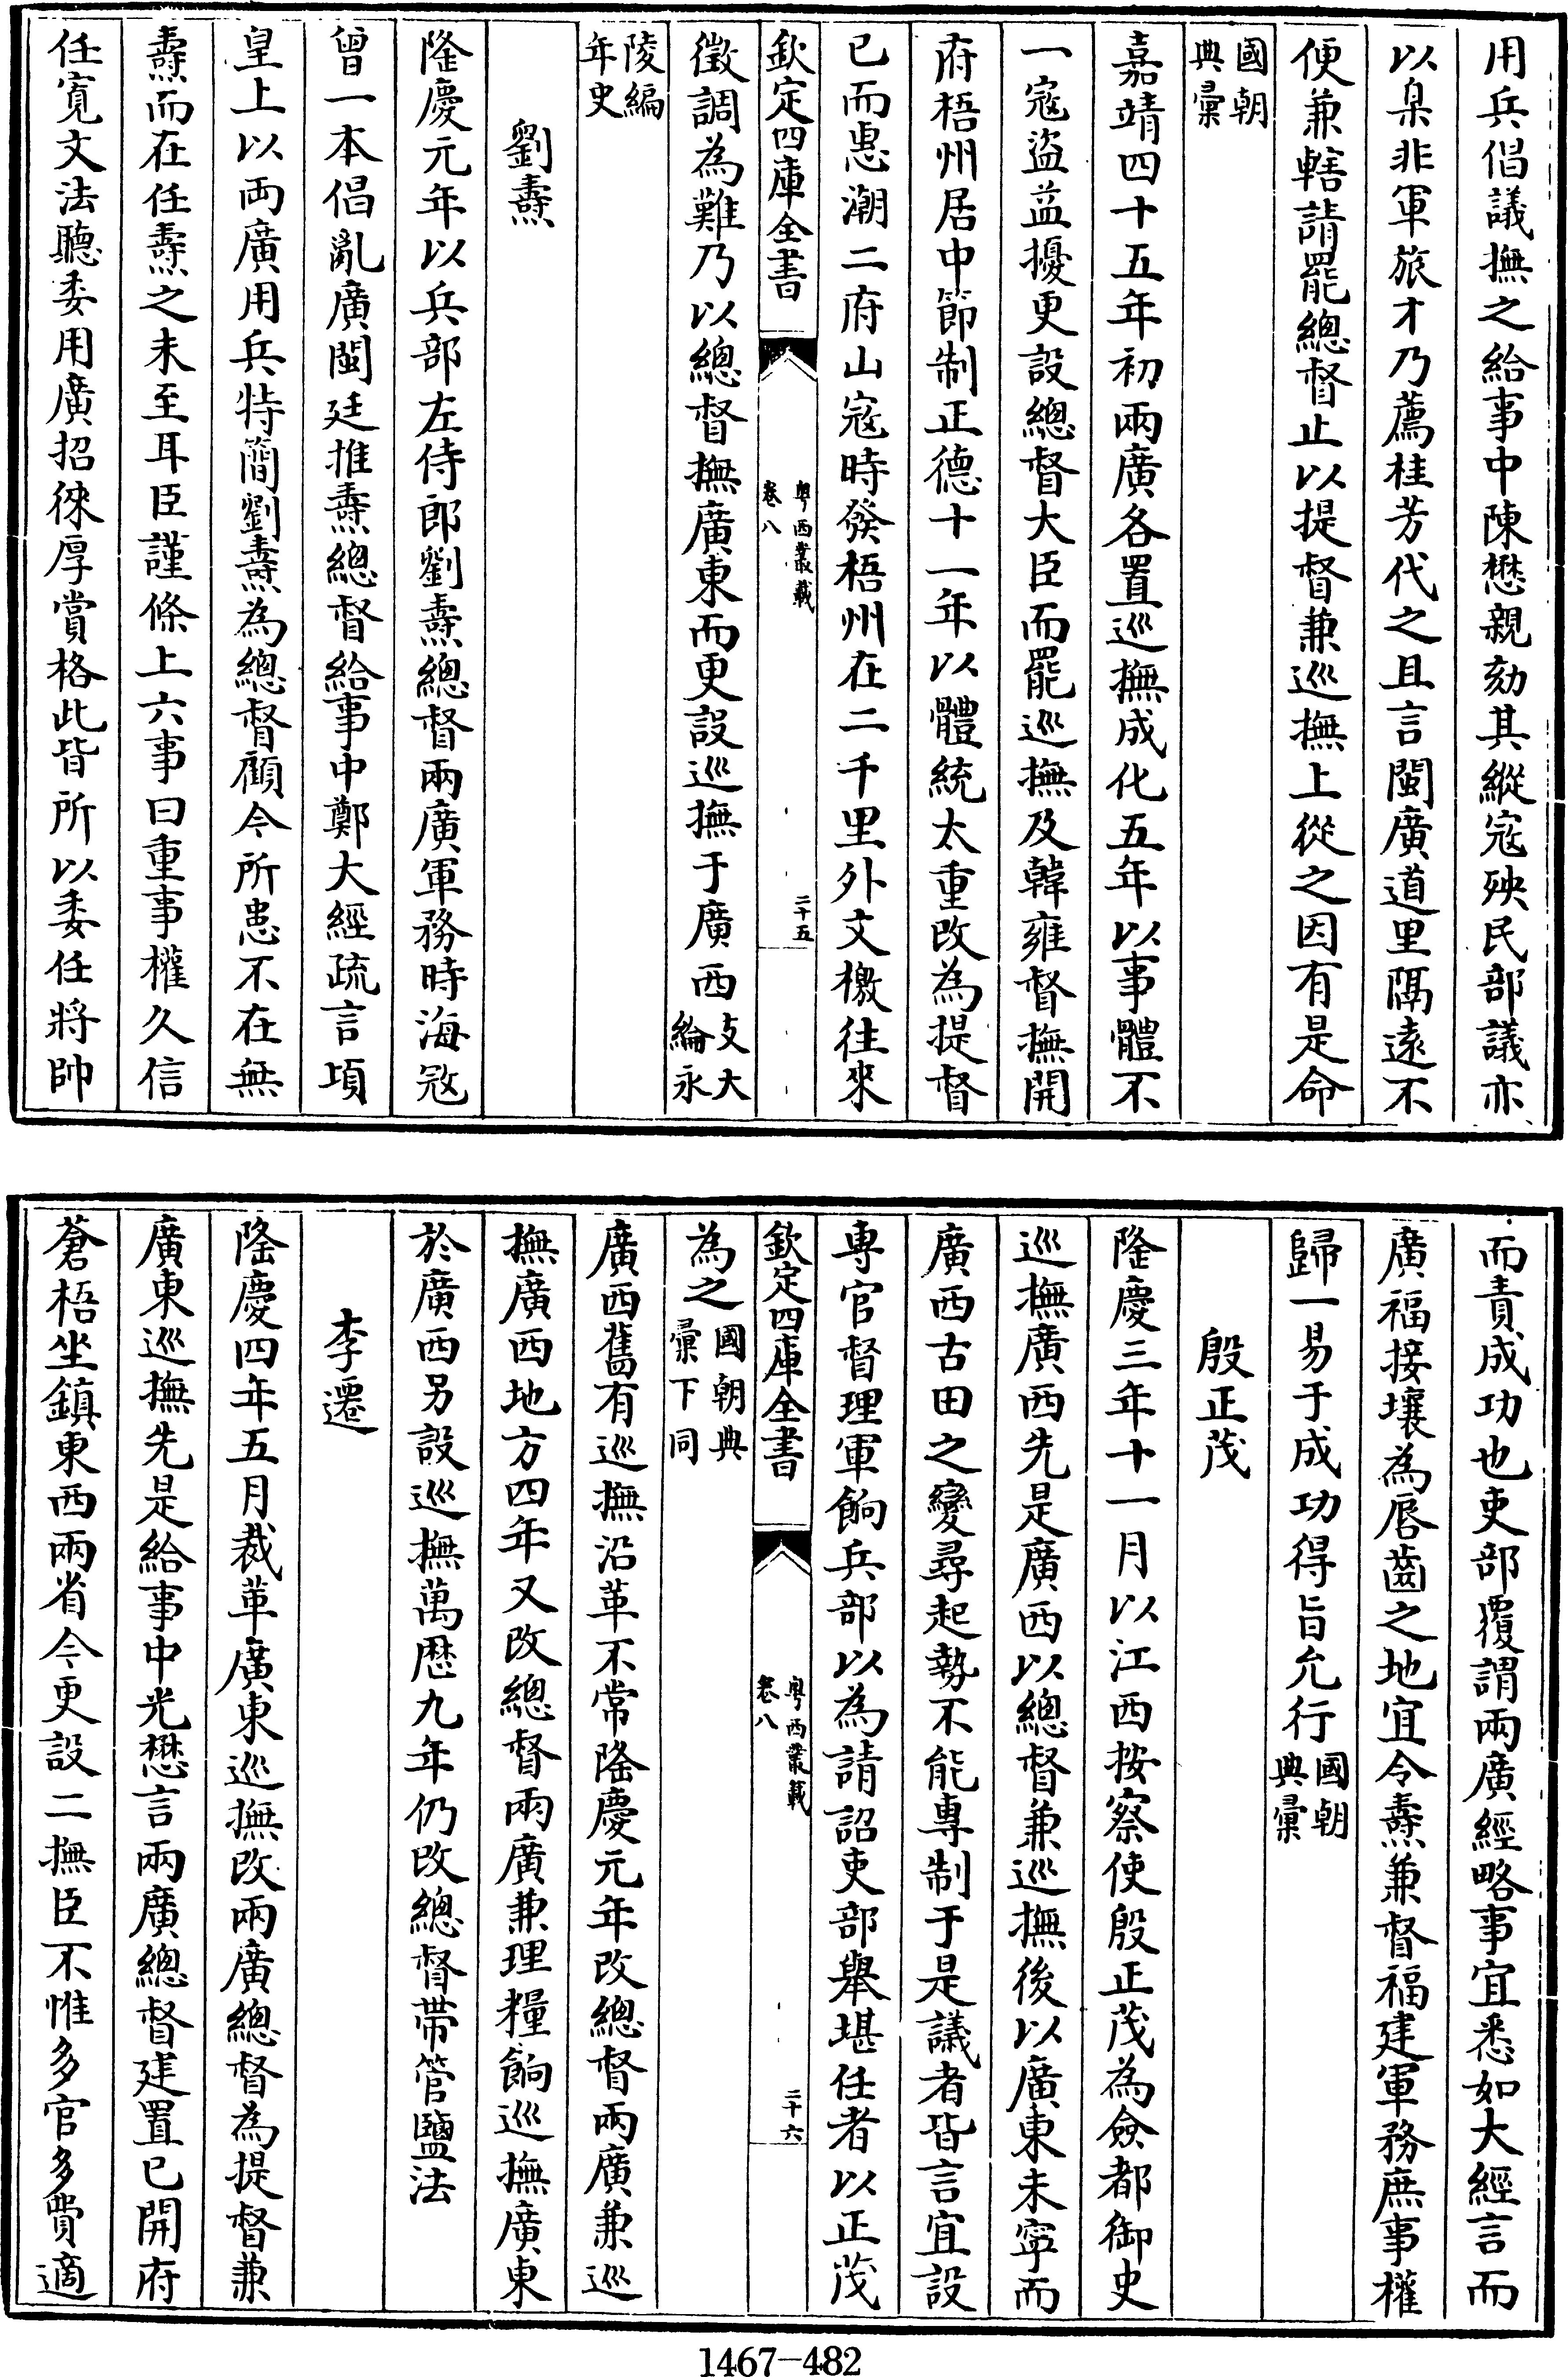 用兵倡議撫之給事中陳懋親劾其縱寇殃民部議亦
以臬非軍旅才乃薦桂芳代之且言閩廣道里隔遠不
便兼轄請罷總督止以提督兼巡撫上從之因有是命
國朝
典彚
嘉靖四十五年初兩廣各置巡撫成化五年以事體不
一寇盜益擾更設總督大臣而罷巡撫及韓雍督撫開
府梧州居中節制正德十一年以體統太重改為提督
已而惠潮二府山寇時發梧州在二千里外文檄往來
欽定四庫全書
粤西叢載
卷八
二十五
徵調為難乃以總督撫廣東而更設巡撫于廣西支大
綸永
陵編
年史
劉燾
隆慶元年以兵部左侍郎劉燾總督兩廣軍務時海寇
曾一本倡亂廣閩廷推燾總督給事中鄭大經疏言項
皇上以兩廣用兵特簡劉燾為總督顧今所患不在無
燾而在任燾之未至耳臣謹條上六事曰重事權久信
任寬文法聽委用廣招徠厚賞格此皆所以委任將帥
而責成功也吏部覆謂兩廣經略事宜悉如大經言而
廣福接壤為唇齒之地宜令燾兼督福建軍務庶事權
歸一易于成功得旨允行國朝
典彚
殷正茂
隆慶三年十一月以江西按察使殷正茂為僉都御史
巡撫廣西先是廣西以總督兼巡撫後以廣東未寧而
廣西古田之變尋起勢不能專制于是議者皆言宜設
專官督理軍餉兵部以為請詔吏部舉堪任者以正茂
欽定四庫全書
粤西叢載
卷八
二十六
為之國朝典
彚下同
廣西舊有巡撫沿革不常隆慶元年改總督兩廣兼巡
撫廣西地方四年又改總督兩廣兼理糧餉巡撫廣東
於廣西另設巡撫萬歴九年仍改總督帶管鹽法
李遷
隆慶四年五月裁革廣東巡撫改兩廣總督為提督兼
廣東巡撫先是給事中光懋言兩廣總督建置已開府
蒼梧坐鎮東西兩省今更設二撫臣不惟多官多費適
1467-482